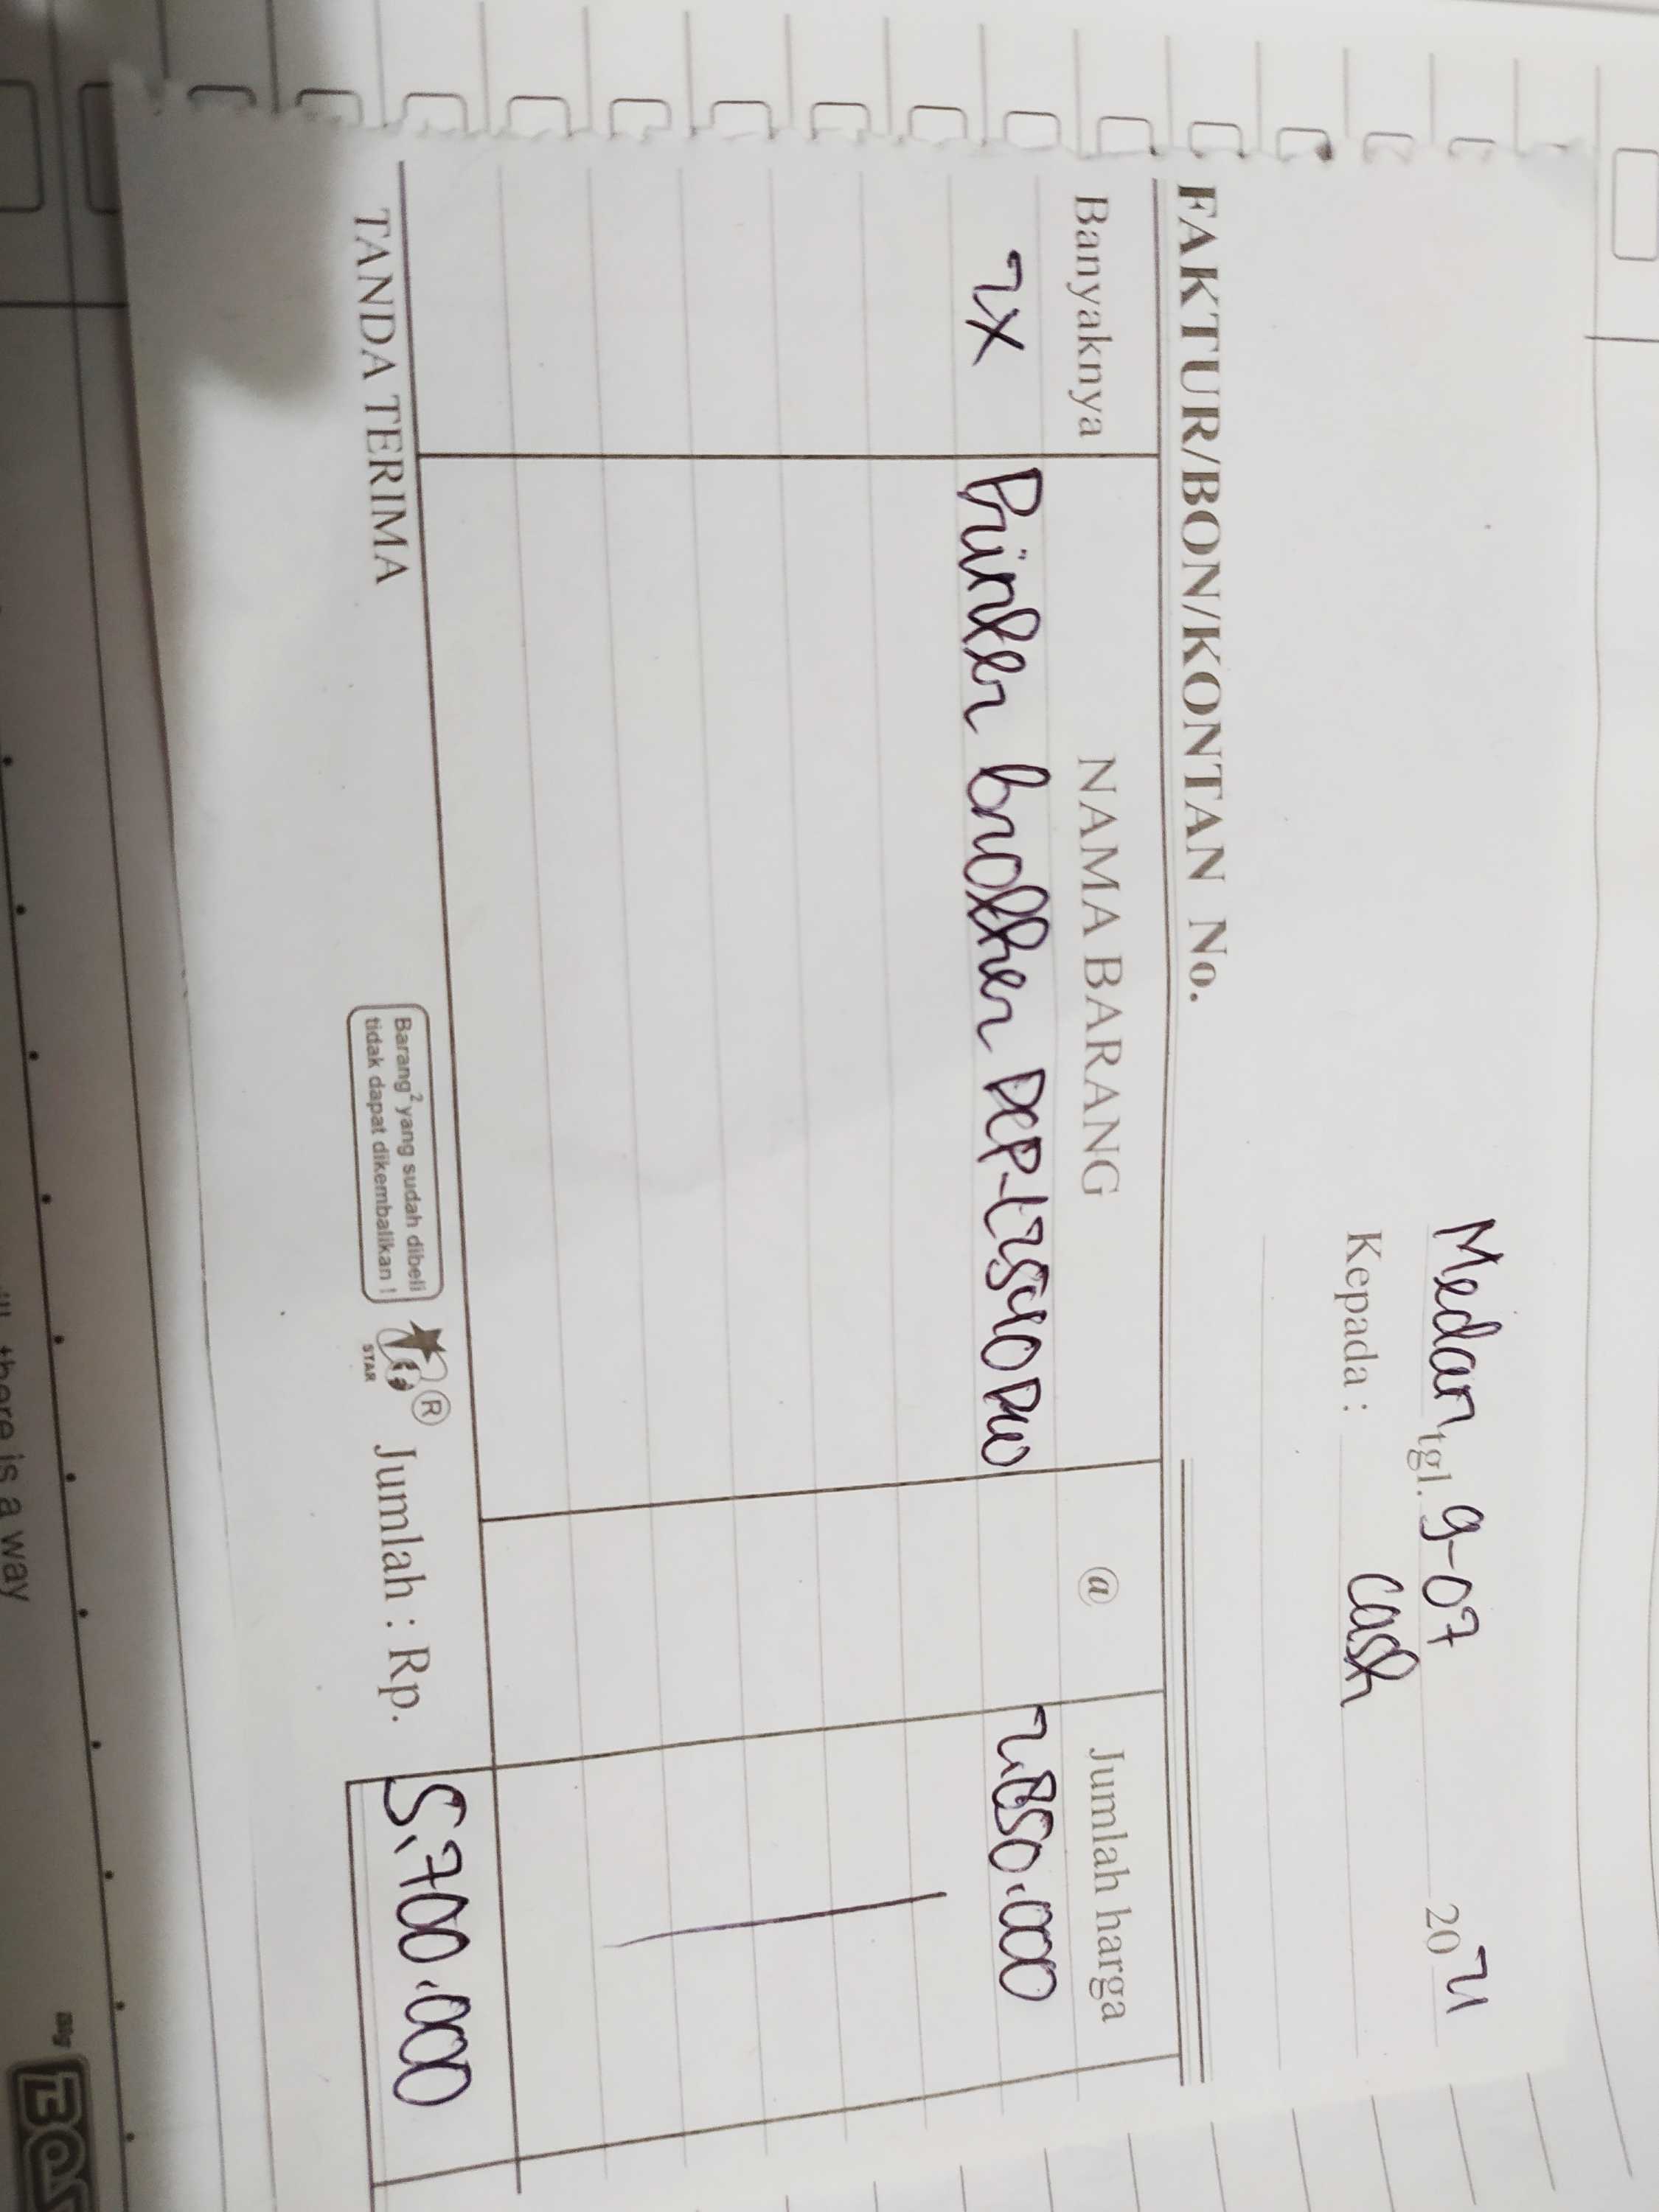 Medan tgl. 9-07 20
Kepada : Cash
FAKTUR/BON/KONTAN No.
Banyaknya NAMA BARANG @ Jumlah harga
2x Printer brother DCP-L2540DW 2.850.000
TANDA TERIMA
Barang² yang sudah dibeli
tidak dapat dikembalikan !
STAR
®
Jumlah : Rp. 5.700.000
there is a way
Big